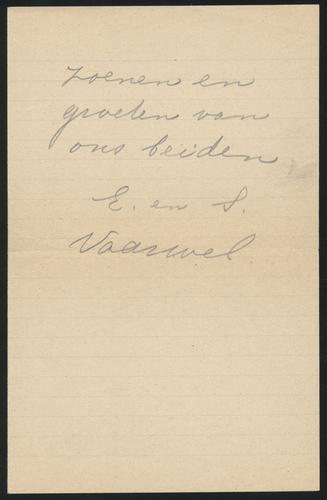 zoenen en
groeten van
ons beiden
E. en S.
Vaarwel